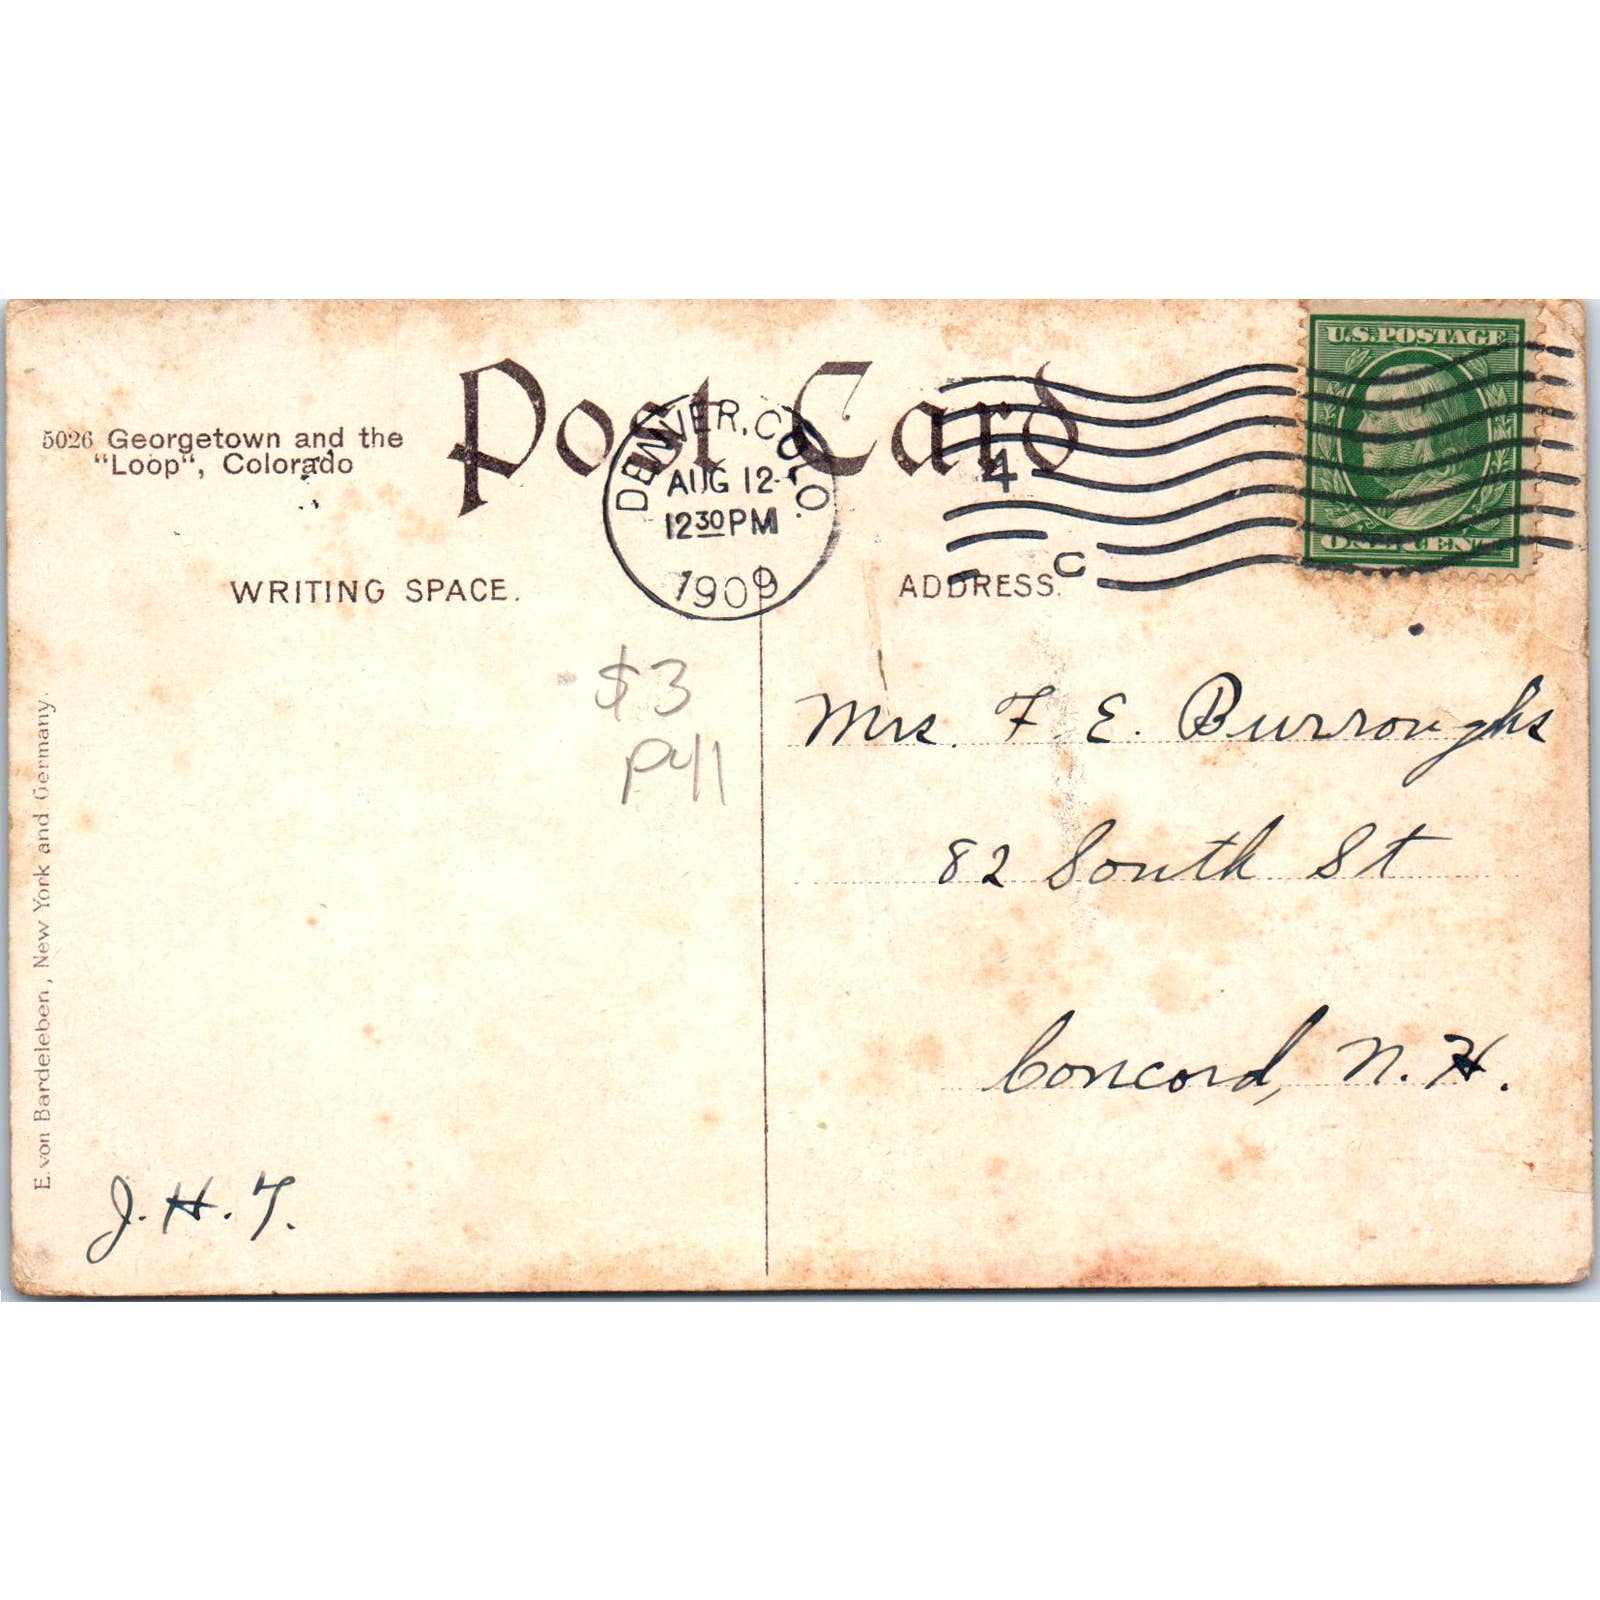 U.S. POSTAGE
ONE CENT
Post Card
5026 Georgetown and the
"Loop", Colorado
DENVER, COLO.
AUG 12
12 30 PM
1909
4
C
WRITING SPACE.
ADDRESS.
$3
P411
Mrs. F. E. Burroughs
82 South St
Concord, N.H.
J.H.T.
E. von Bardeleben, New York and Germany.